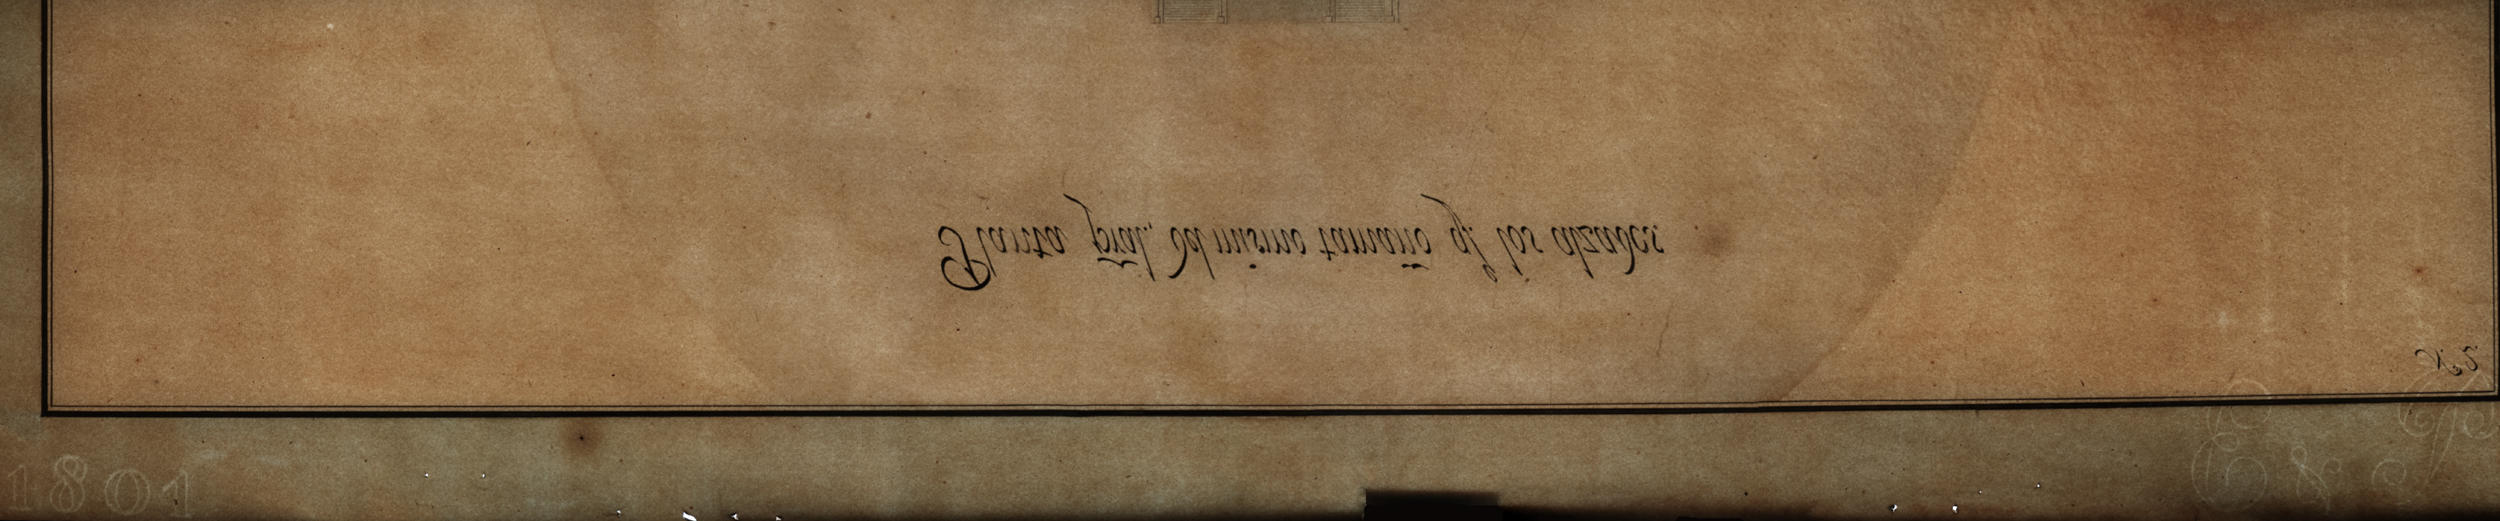 Planta pral, del mismo tamaño qe. los alzados.
N. 2.
1801